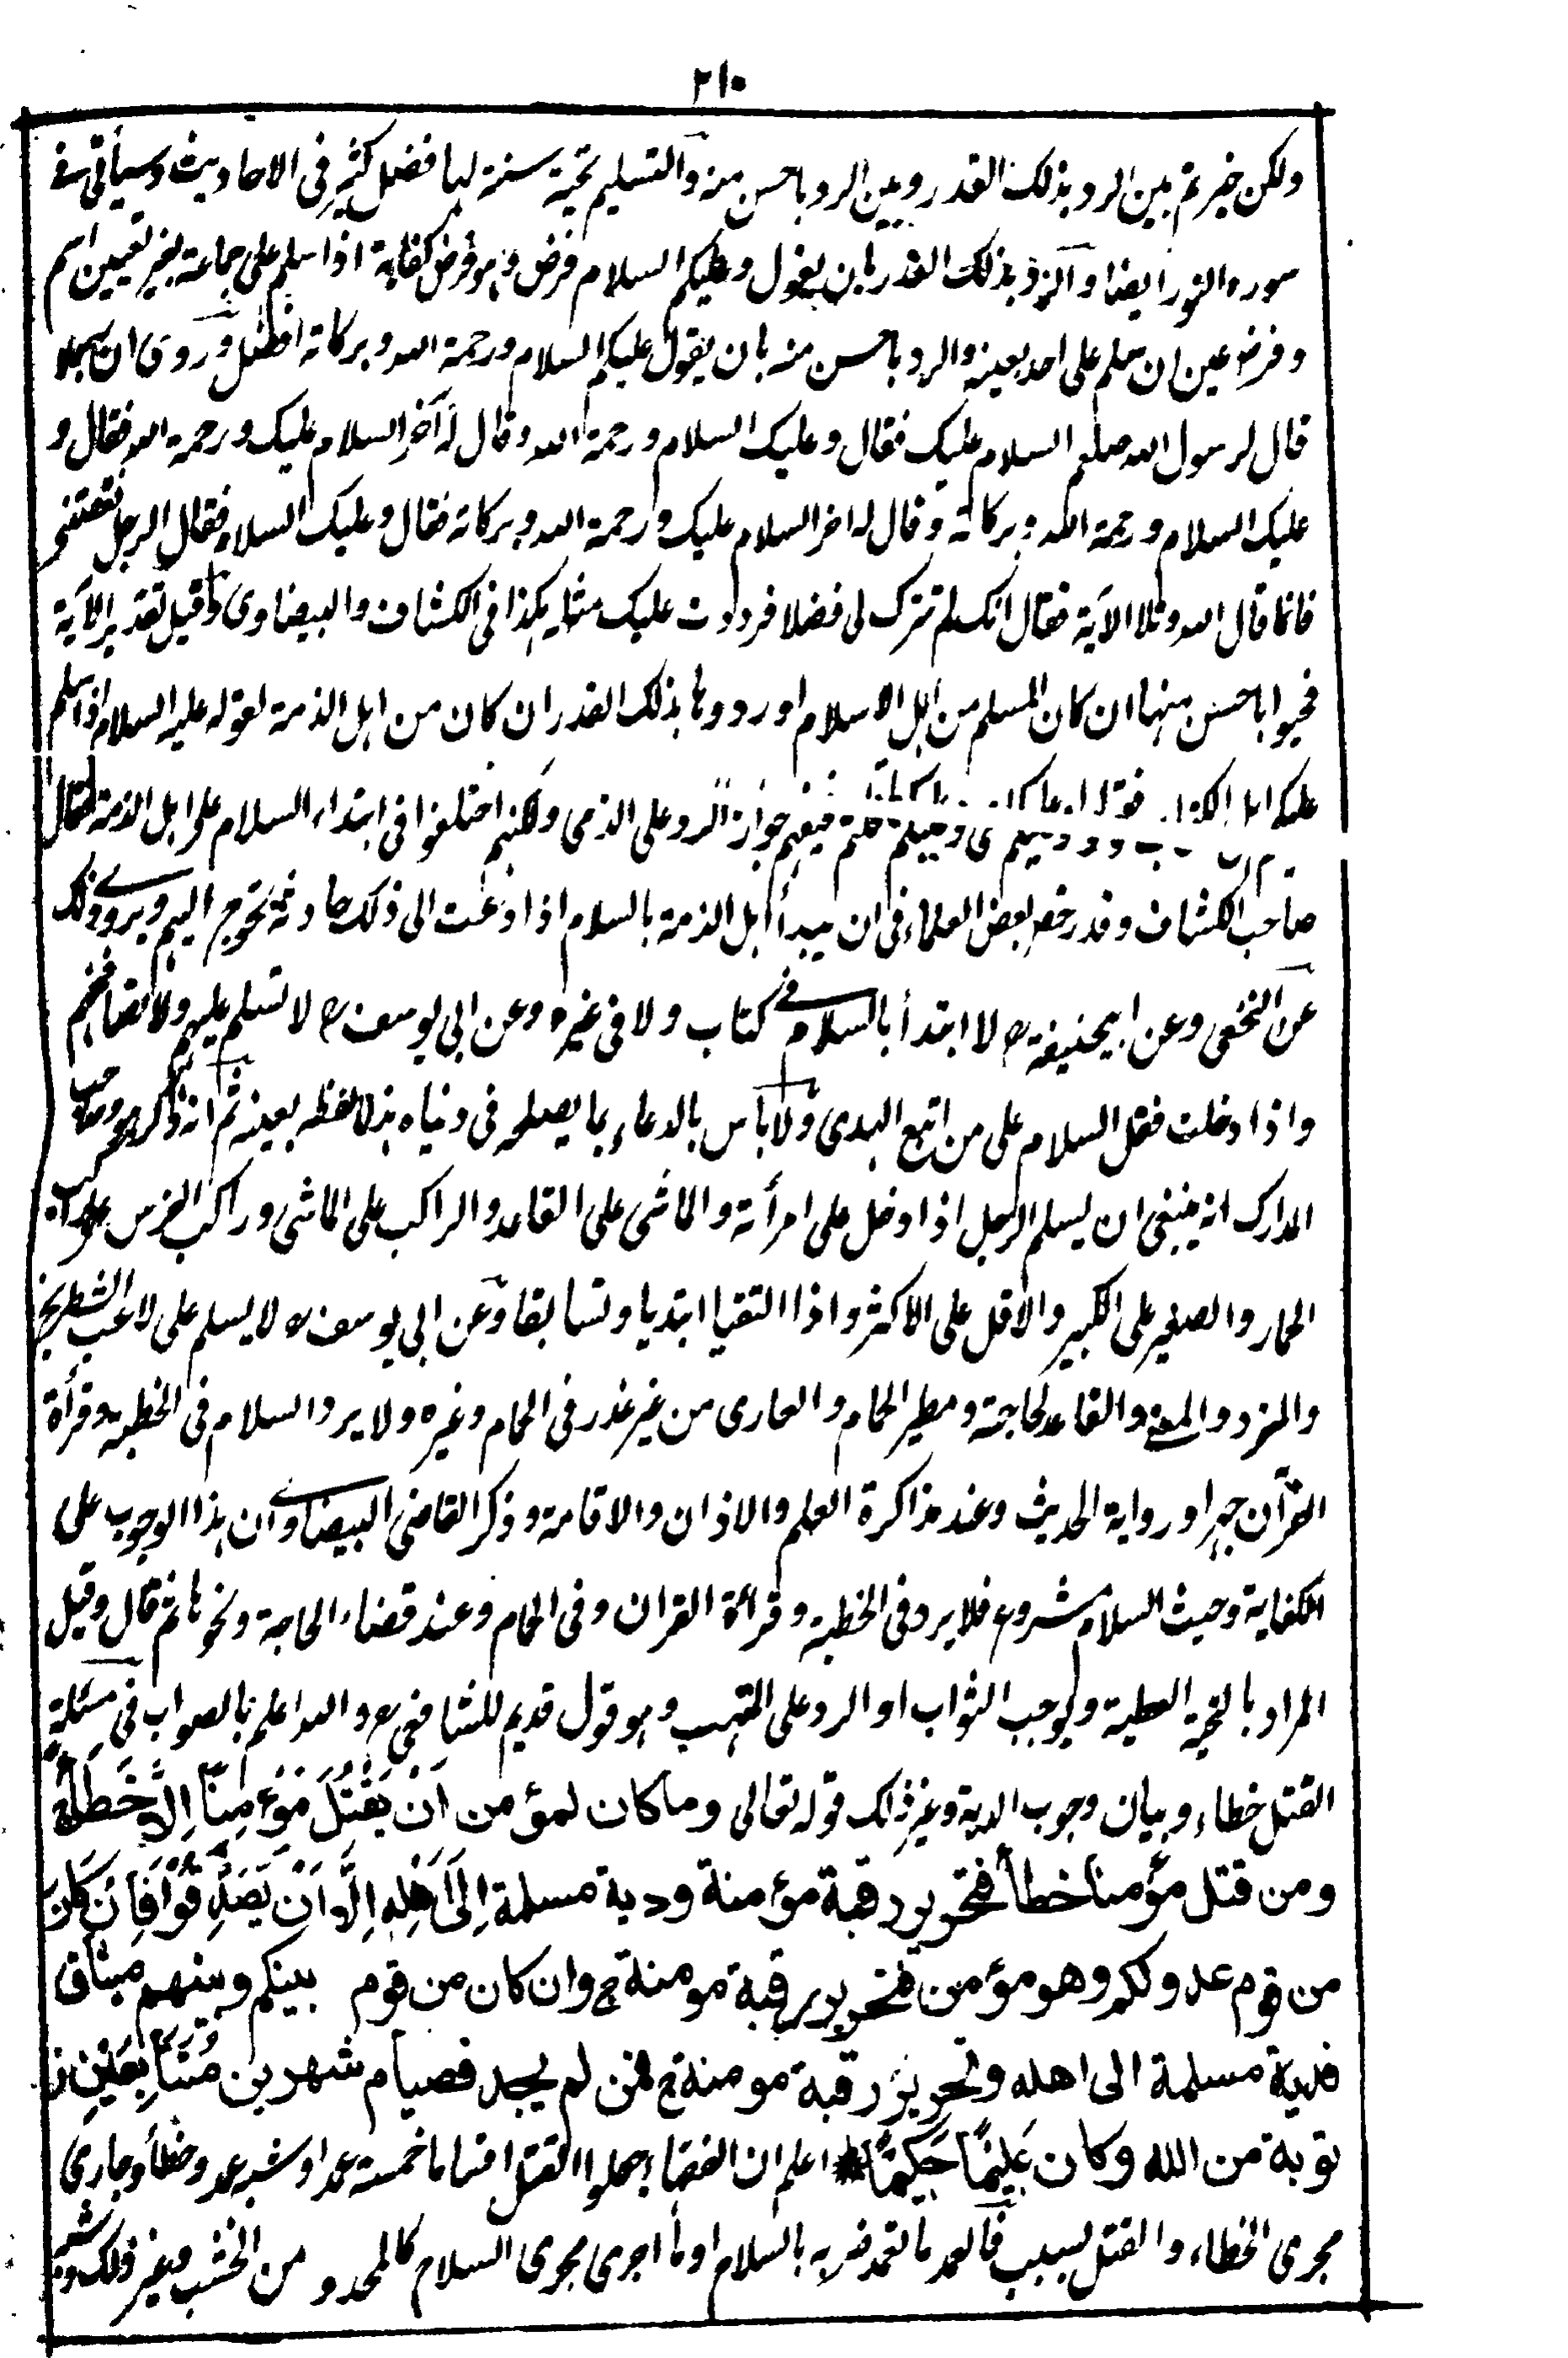 ٢١٠
ولكن خير تم بين الرد بذلك القدر وبين الرد باحسن منه والتسليم تحية سنة لها فضل كثير فى الاحاديث وسيأتى فے
سورة النور ايضا والرد بذلك القدر بان يقول وعليكم السلام فرض وهو فرض كفاية اذا سلم على جماعة بغير تعيين اسم
وفرض عين ان سلم على احد بعينه والرد باحسن منه بان يقول عليكم السلام ورحمة الله وبركاته افضل وروى ان رجلا
قال لرسول الله صلعم السلام عليك فقال وعليك السلام ورحمة الله وقال له آخر السلام عليك ورحمة الله فقال و
عليك السلام ورحمة الله وبركاته وقال له اخر السلام عليك ورحمة الله وبركاته فقال وعليك السلام فقال الرجل نقصتنى
فاتما قال الله وتلا الآية فقال انك لم تترك لى فضلا فرددت عليك مثله هكذا فى الكشاف والبيضاوى وقيل تقدير الآية
فحيوا باحسن منها ان كان المسلم من اهل الاسلام او ردوها بذلك القدر ان كان من اهل الذمة لقوله عليه السلام اذا سلم
عليكم اهل الكتاب فقولوا فيفهم جواز الرد على الذمى ولكنهم اختلفوا فى ابتداء السلام على اهل الذمة فقال
صاحب الكشاف وقد رخص بعض العلماء فى ان يبدأ اهل الذمة بالسلام اذا دعت الى ذلك حادثة تحوج اليهم ويروے ذلك
عن النخعى وعن ابيحنيفة رح لا ابتدأ بالسلام فے كتاب ولا فى غيره وعن ابى يوسف رح لا تسلم عليهم ولا تصافحهم
واذا دخلت فقل السلام على من اتبع الهدى ولا بأس بالدعاء بما يصلحه فى دنياه هذا لفظه بعينه ثم انه ذكر هو وصاحب
المدارك انه ينبغى ان يسلم الرجل اذا دخل على امرأته والماشى على القاعد والراكب على الماشى وراكب الفرس على راكب
الحمار والصغير على الكبير والاقل على الاكثر واذا التقيا ابتديا وتسابقا وعن ابى يوسف رح لا يسلم على لاعب الشطرنج
والنرد والمغنے والقاعد لحاجة ومطير الحمام والعارى من غير عذر فى الحمام وغيره ولا يرد السلام فى الخطبة وقرأة
القرآن جهرا ورواية الحديث وعند مذاكرة العلم والاذان والاقامة وذكر القاضى البيضاوے ان هذا الوجوب على
الكفاية وحيث السلام مشروع فلا يرد فى الخطبة وقرأة القران وفى الحمام وعند قضاء الحاجة ونحوها ثم قال وقيل
المراد بالتحية العطية ويوجب الثواب او الرد على المتهب وهو قول قديم للشافعى رح والله اعلم بالصواب فى مسئلة
القتل خطاء وبيان وجوب الدية وغير ذلك قوله تعالى وما كان لمؤمن اَنْ يَقْتُلَ مُؤْمِنًا اِلَّا خَطَأً ج
ومن قتل مؤمنا خطأ فتحرير رقبة مؤمنة ودية مسلمة اِلَى اَهْلِهِ اِلَّا اَنْ يَصَّدَّقُوْا فَاِنْ كَانَ
من قوم عدو لكم وهو مؤمن فتحرير رقبة مومنة ج وان كان من قوم بينكم وبينهم ميثاق
فدية مسلمة الى اهله وتحرير رقبة مومنة ج فمن لم يجد فصيام شهرين مُتَتَابِعَيْنِ ز
توبة من الله وكان عَلِيْمًا حَكِيْمًا اعلم ان الفقهاء جعلوا القتل اقساما خمسة عمدا وشبه عمد وخطأ وجارى
مجرى الخطاء والقتل بسبب فالعمد ما تعمد ضربه بالسلام او ما اجرى مجرى السلام كالمحدد من الخشب وغير ذلك وشبه